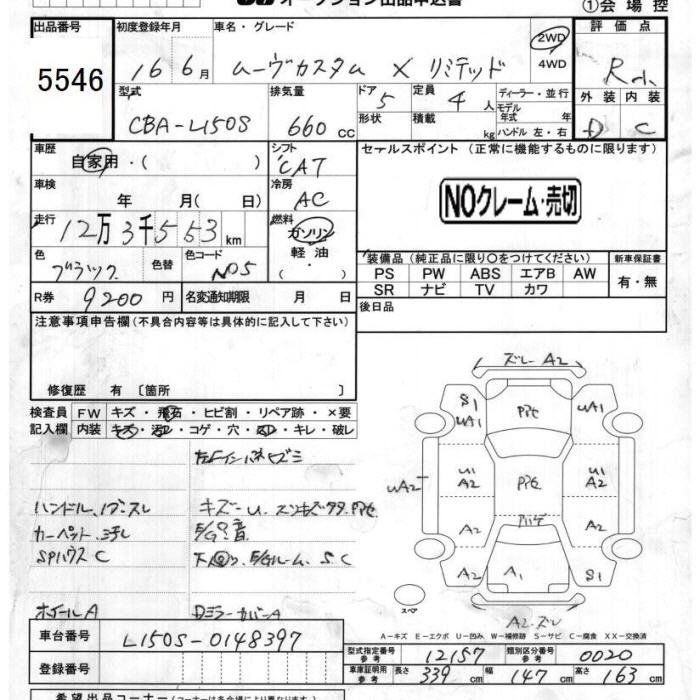 オークション出品申込書
①会場控
出品番号 初度登録年月 車名・グレード 評価点
5546 16 6月 ムーヴカスタム X リミテッド 2WD 4WD R
型式 排気量 ドア 5 定員 4人 ディーラー・並行 外装 内装
CBA-L150S 660cc 形状 積載 kg モデル年式 年 ハンドル 左・右 D C
車歴 シフト セールスポイント (正常に機能するものに限ります)
自家用・( ) CAT
車検 冷房
年 月( 日) AC NOクレーム・売切
走行 燃料
12万3千553km ガソリン 軽油 ・( )
色 色替 色コード 装備品 (純正品に限り〇をつけてください) 新車保証書
ブラック NO5 PS PW ABS エアB AW 有・無
R券 9200円 名変通知期限 月 日 SR ナビ TV カワ
注意事項申告欄 (不具合内容等は具体的に記入して下さい) 後日品
修復歴 有 〔箇所 〕
検査員 FW キズ・飛石・ヒビ割・リペア跡・×要
記入欄 内装 キズ・汚レ・コゲ・穴・
・キレ・破レ
ズレ A2
S1 UA1 UA1
UA2 U1 A2 U1 A2
A2 A2
A2 A1 S1
A2 ズレ
スペア
カーペット
SPハウスC S.C
ホイールA DミラーカバーA
A-キズ E-エクボ U-凹み W-補修跡 S-サビ C-腐食 XX-交換済
車台番号 L150S-0148397 型式指定番号 参考 12157 類別区分番号 参考 0020
登録番号 車車証明用 参考 長さ 339cm 幅 147cm 高さ 163cm
希望出品コーナー